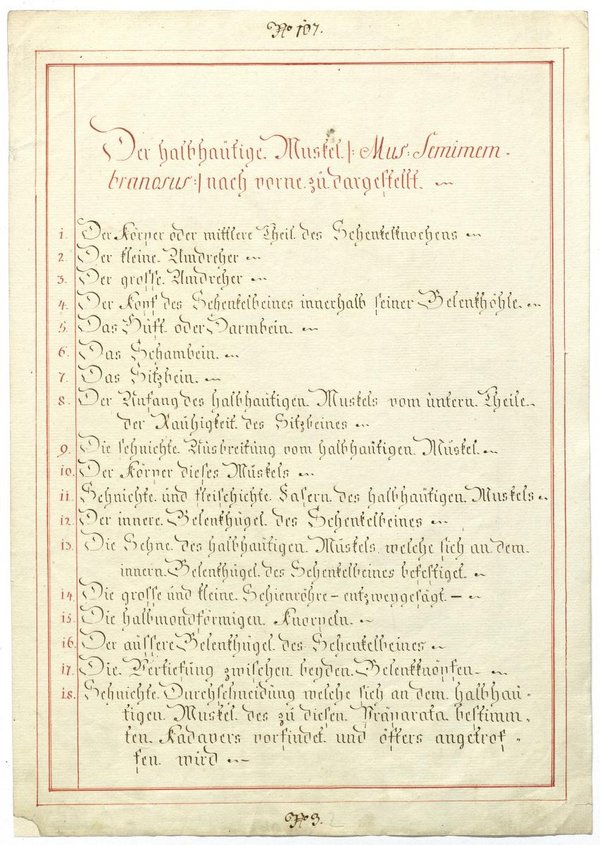 No 107.
Der halbhäutige Muskel |: Mus: Semimem-
branosus :| nach vorne zu dargestellt.
1. Der Körper oder mittlere Theil des Schenkelknochens
2. Der kleine Umdreher
3. Der grosse Umdreher
4. Der Kopf des Schenkelbeines innerhalb seiner Gelenkhöhle.
5. Das Hüft oder Darmbein.
6. Das Schambein.
7. Das Sitzbein.
8. Der Anfang des halbhäutigen Muskels vom untern Theile
der Rauhigkeit des Sitzbeines
9. Die sehnichte Ausbreitung vom halbhäutigen Muskel.
10. Der Körper dieses Muskels
11. Sehnichte und fleischichte Fasern des halbhäutigen Muskels
12. Der innere Gelenkhügel des Schenkelbeines
13. Die Sehne des halbhäutigen Muskels welche sich an dem
innern Gelenkhügel des Schenkelbeines befestiget.
14. Die grosse und kleine Schienröhre – entzweygesägt. –
15. Die halbmondförmigen Knorpeln.
16. Der äussere Gelenkhügel des Schenkelbeines
17. Die Vertiefung zwischen beyden Gelenkknöpfen.
18. Sehnichte Durchschneidung welche sich an dem halbhäu-
tigen Muskel des zu diesen Präparata bestimm-
ten Kadavers vorfindet und öfters angetrof-
fen wird
No 3.